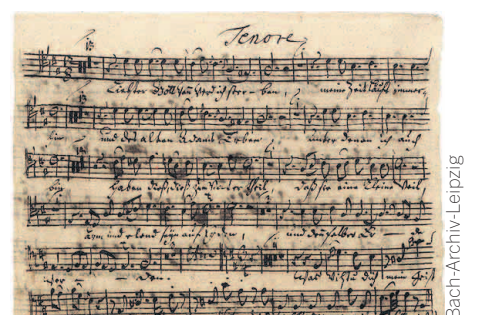 Tenore
13
Liebster Gott wann werd ich ster - ben, meine Zeit läufft immer-
13
hin, und des alten Adams Erben, unter denen ich auch
bin, haben zum daß sie eine kleine Weil,
arm und elend seyn auf Erden, und
den. dich mein Geist
Bach-Archiv-Leipzig